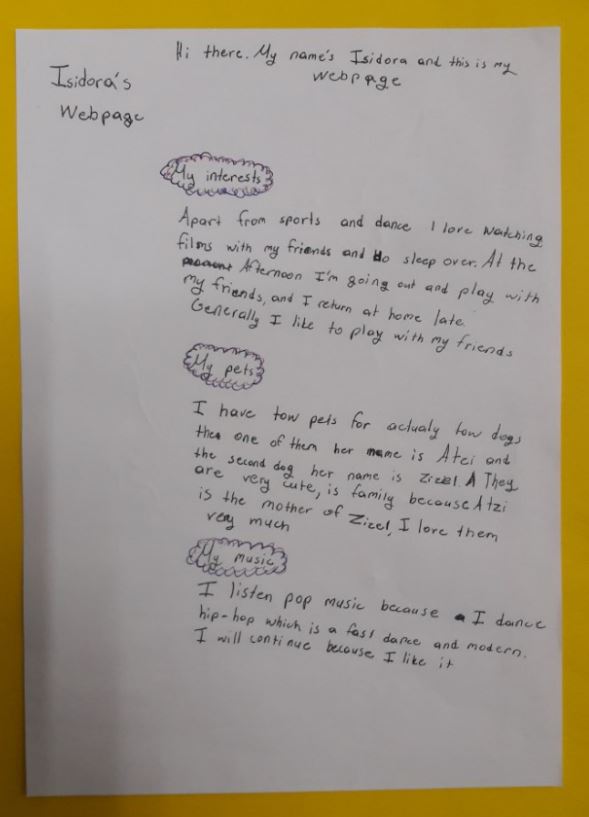 Hi there. My name's Isidora and this is my
webpage
Isidora's
Webpage
My interests
Apart from sports and dance I love watching
films with my friends and do sleep over. At the
Afternoon I'm going out and play with
my friends, and I return at home late.
Generally I like to play with my friends
My pets
I have tow pets for actualy tow dogs
the one of them her name is Atzi and
the second dog her name is Zizel. They
are very cute, is family because Atzi
is the mother of Zizel, I love them
very much
My music
I listen pop music because I dance
hip-hop which is a fast dance and modern.
I will continue because I like it